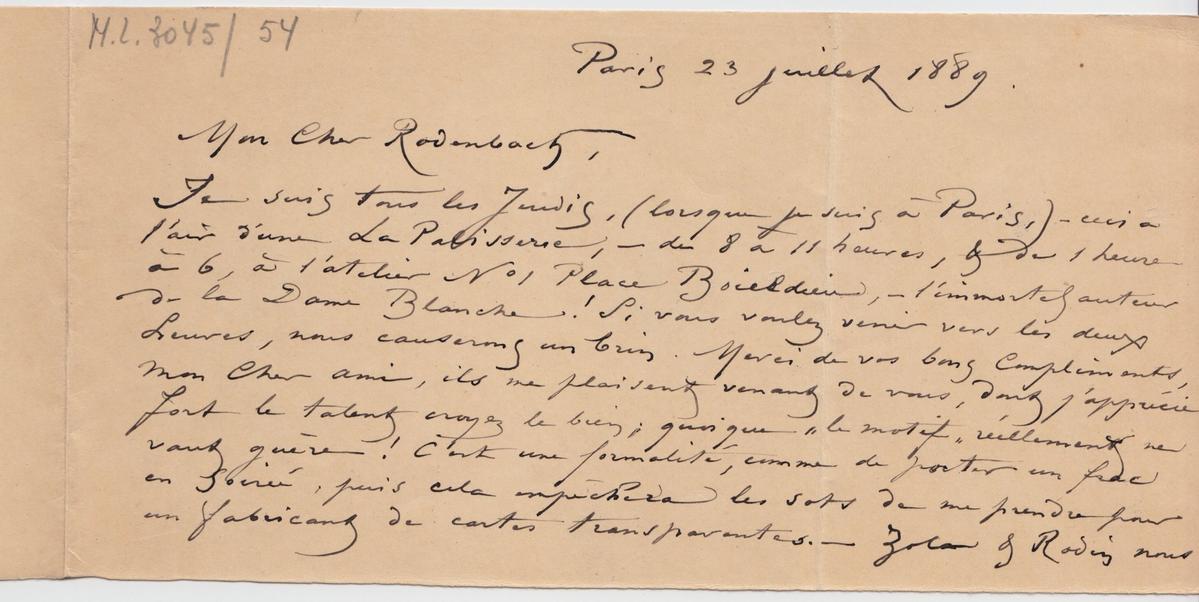 M.L. 3045/ 54
Paris 23 juillet 1889.
Mon Cher Rodenbach,
Je suis tous les Jeudis, (lorsque je suis à Paris,) – ceci a
l'air d'une La Palisserie, – de 8 à 11 heures, & de 1 heure
à 6, à l'atelier No 1 Place Boieldieu, – l'immortel auteur
de la Dame Blanche ! Si vous voulez venir vers les deux
heures, nous causerons un brin. Merci de vos bons Compliments,
mon Cher ami, ils me plaisent venant de vous, dont j'apprécie
fort le talent croyez le bien ; quoique „le motif„ réellement ne
vaut guère ! C'est une formalité, comme de porter un frac
en Soirée, puis cela empêchera les sots de me prendre pour
un fabricant de cartes transparentes. – Zola & Rodin nous